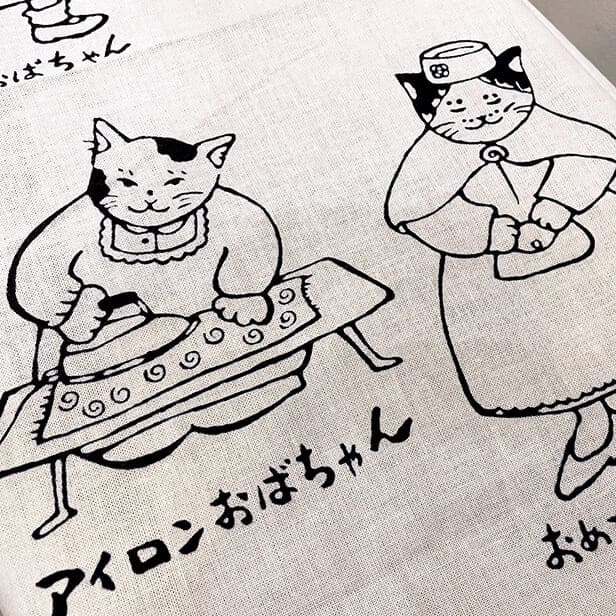 おばちゃん
アイロンおばちゃん
おめ